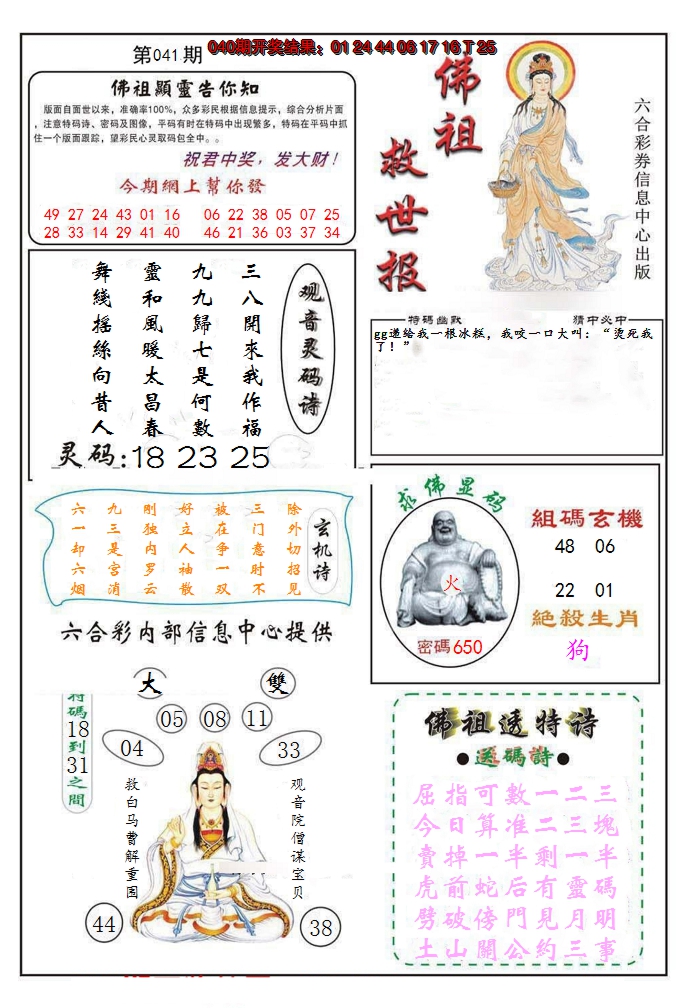 第041期
040期开奖结果：01 24 44 06 17 16 T 25
佛祖顯靈告你知
版面自面世以来，准确率100%，众多彩民根据信息提示，综合分析片面
，注意特码诗、密码及图像，平码有时在特码中出现繁多，特码在平码中抓
住一个版面跟踪，望彩民心灵取码包全中。。
祝君中奖，发大财！
今期網上幫你發
49 27 24 43 01 16 06 22 38 05 07 25
28 33 14 29 41 40 46 21 36 03 37 34
佛祖
救世报
六合彩券信息中心出版
观音灵码诗
三八開來我作福
九九歸七是何數
靈和風暖太昌春
舞綫摇絲向昔人
灵码:18 23 25
特碼幽默
猜中必中
gg递给我一根冰糕，我咬一口大叫：“烫死我
了！”
玄机诗
除外切招见
三门意时不
被在争一双
好立人袖散
刚独内罗云
九三是宫消
六一却六烟
六合彩内部信息中心提供
求佛显码
火
密碼650
組碼玄機
48 06
22 01
絶殺生肖
狗
大
雙
特碼18到31之間
05 08 11
04
33
救白马曹解重围
观音院僧谋宝贝
44
38
佛祖透特诗
●送碼詩●
屈指可數一二三
今日算准二三塊
賣掉一半剩一半
虎前蛇后有靈碼
劈破傍門見月明
土山關公約三事